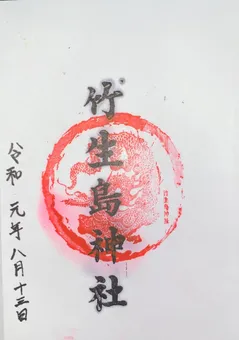 竹生島神社
令和元年八月十三日